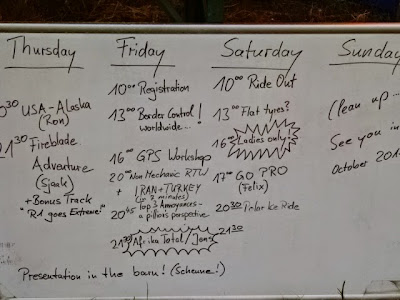 Thursday
30 USA-Alaska
(Ron)
21 30 Fireblade
Adventure
(Sjaak)
+Bonus Track
"R1 goes Extreme!"
Friday
10 00 Registration
13 00 Border Control!
worldwide...
16 00 GPS Workshop
20 00 Non Mechanic RTW
+ IRAN+TURKEY
(in 7 minutes)
20 45 Top 3 Annoyances-
a pillion's perspective
21 30 Afrika Total/Jens
Saturday
10 00 Ride Out
13 00 Flat tyres?
16 00 Ladies only!
17 00 GO PRO
(Felix)
20 30 Polar Ice Ride
21 30
Sunday
Clean up...
See you in
October 201
Presentation in the barn! (Scheune!)